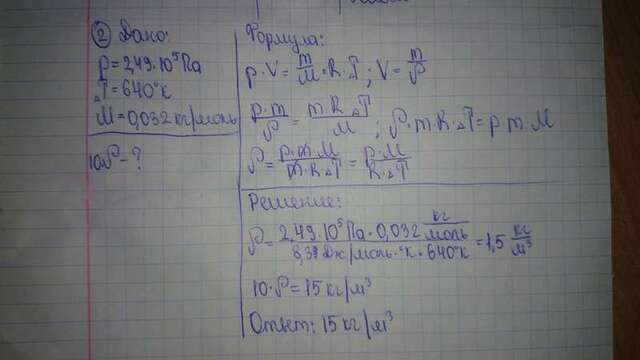 ② Дано:
p = 2,49·10⁵Па
△T = 640°к
M = 0,032 кг/моль
10ρ - ?
Формула:
p·V = m/M·R·△T ; V = m/ρ
p·m/ρ = m R △T/M ; ρ·m·R·△T = p m M
ρ = p·m·M/m·R·△T = p·M/R·△T
Решение:
ρ = 2,49·10⁵Па·0,032 кг/моль / 8,31 Дж/моль·°к·640°к = 1,5 кг/м³
10·ρ = 15 кг/м³
Ответ: 15 кг/м³